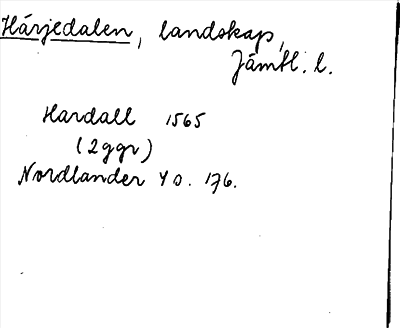 Härjedalen, landskap,
Jämtl. l.
Hardall 1565
(2ggr)
Nordlander YO. 176.